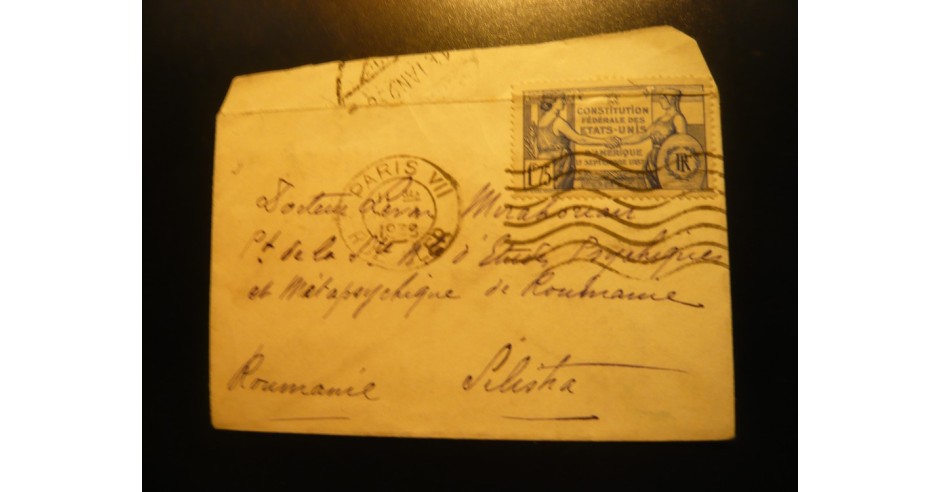 CONSTITUTION
FÉDÉRALE DES
ETATS-UNIS
D'AMÉRIQUE
17 SEPTEMBRE
RF
1F75
PARIS VII
1938
Docteur Levon
Pt. de la Sté d'Etudes Psychiques
et Métapsychique de Roumanie
Roumanie Silistra